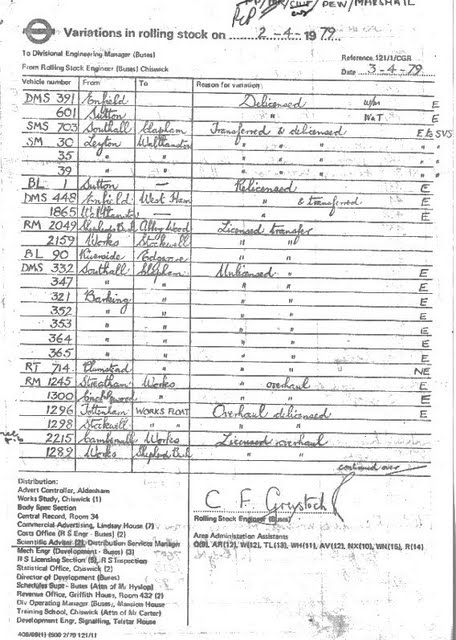 DEW/MARSHALL
Variations in rolling stock on 2-4-1979
To Divisional Engineering Manager (Buses)
From Rolling Stock Engineer (Buses) Chiswick
Reference 121/1/CGR
Date 3-4-79
Vehicle number From To Reason for variation
DMS 391 Enfield Delicensed E
601 Sutton " E
SMS 703 Southall Clapham Transferred & delicensed E to SVS
SM 30 Leyton Walthamstow " "
35 " " " "
39 " " " "
BL 1 Sutton — Relicensed E
DMS 448 Enfield West Ham " & transferred E
1865 — " E
RM 2049 Shepherds Bush Abbey Wood Licensed transfer
2159 Works Stockwell " "
BL 90 Riverside Edgware " "
DMS 332 Southall Clapham Unlicensed " E
347 " " " " E
321 Barking " " " E
352 " " " " E
353 " " " " E
364 " " " " E
365 " " " " E
RT 714 Plumstead " " " NE
RM 1245 Streatham Works " overhaul E
1300 Cricklewood " " " E
1296 Tottenham WORKS FLOAT Overhaul delicensed E
1298 Stockwell " " "
2215 Camberwell Works Licensed overhaul
1289 Works Shepherds Bush " "
continued over
Distribution:
Advert Controller, Aldenham
Works Study, Chiswick (1)
Body Spec Section
Central Record, Room 34
Commercial Advertising, Lindsay House (7)
Costs Office (R S Engr - Buses) (2)
Scientific Adviser (2), Distribution Services Manager
Mech Engr (Development - Buses) (3)
R S Licensing Section (5), R S Inspection
Statistical Office, Chiswick (2)
Director of Development (Buses)
Schedules Supt - Buses (Attn of Mr Hyslop)
Revenue Office, Griffith House, Room 432 (2)
Div Operating Manager (Buses), Mansion House
Training School, Chiswick (Attn of Mr Carter)
Development Engr, Signalling, Telstar House
C F Greystock
Rolling Stock Engineer (Buses)
Area Administration Assistants
Q(9), AR(12), W(12), TL(13), WH(11), AV(12), NX(10), WN(15), R(14)